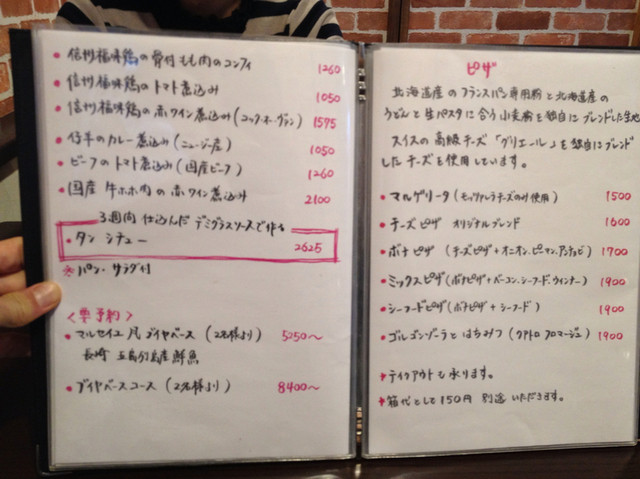 信州福味鶏の骨付もも肉のコンフィ 1260
信州福味鶏のトマト煮込み 1050
信州福味鶏の赤ワイン煮込み(コック・オー・ヴァン) 1575
仔羊のカレー煮込み(ニュージー産) 1050
ビーフのトマト煮込み(国産ビーフ) 1260
国産 牛ホホ肉の赤ワイン煮込み 2100
3週間 仕込んだ デミグラスソースで作る
タン シチュー 2625
※ パン・サラダ付
<要予約>
マルセイユ風 ブイヤベース (2名様より) 5250〜
長崎 五島列島産 鮮魚
ブイヤベースコース (2名様より) 8400〜
ピザ
北海道産のフランスパン専用粉と北海道産の
うどんと生パスタに合う小麦粉を独自にブレンドした生地
スイスの高級チーズ「グリエール」を独自にブレンド
したチーズを使用しています。
マルゲリータ(モッツァレラチーズのみ使用) 1500
チーズピザ オリジナルブレンド 1600
ボナピザ (チーズピザ+オニオン、ピーマン、アンチョビ) 1700
ミックスピザ(ボナピザ+ベーコン、シーフード、ウインナー) 1900
シーフードピザ(ボナピザ+シーフード) 1900
ゴルゴンゾーラとはちみつ(クアトロフロマージュ) 1900
テイクアウトも承ります。
箱代として150円 別途いただきます。